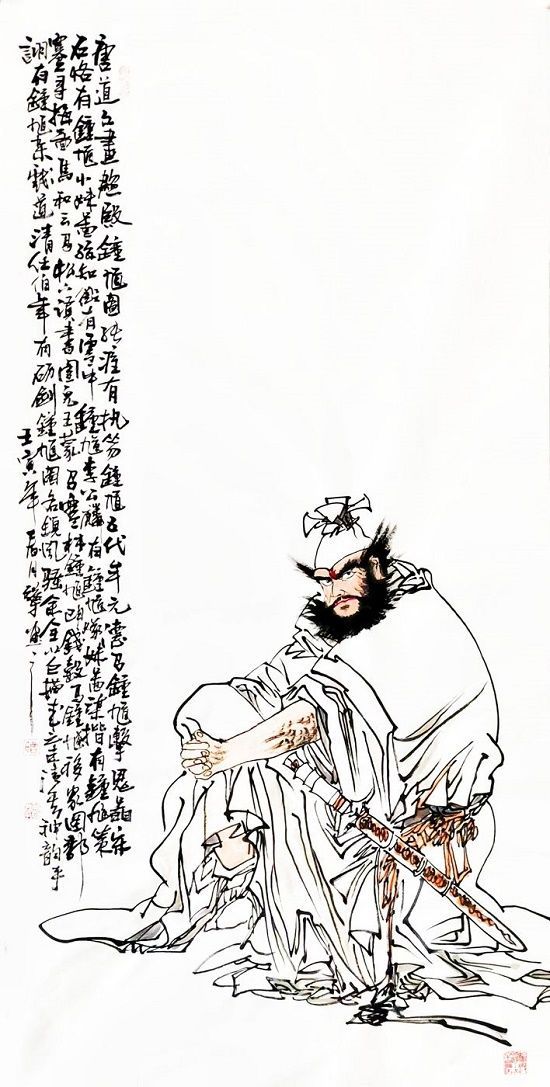 唐道子畫趨殿鍾馗圖張渥有執笏鍾馗五代牟元有鍾馗擊鬼圖宋
石恪有鍾馗小妹圖孫知微有雪中鍾馗李公麟有鍾馗嫁妹圖梁楷有鍾馗策
蹇尋梅圖馬和之有松下讀書圖元王蒙有寒林鍾馗明錢穀有鍾馗移家圖郭
詡有鍾馗杂戲圖清任伯年有砺劍鍾馗圖各領風騷余今以白描神韵乎
壬寅年春月